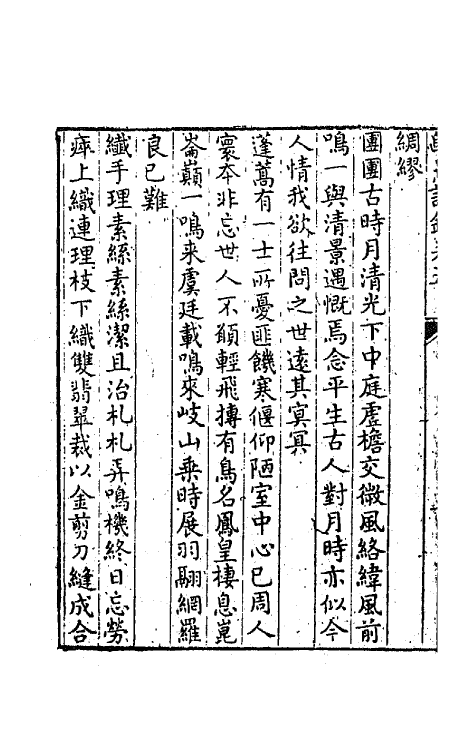 綢繆
團團古時月清光下中庭虛檐交微風絡緯風前
鳴一與清景遇慨焉念平生古人對月時亦似今
人情我欲往問之世遠其冥冥
蓬蒿有一士所憂匪饑寒偃仰陋室中心已周人
寰夲非忘世人不願輕飛摶有鳥名鳳皇棲息崑
崙巔一鳴來虞廷載鳴來岐山乗時展羽翮網羅
良已難
纖手理素絲素絲潔且治札札弄鳴機終日忘勞
瘁上織連理枝下織雙翡翠裁以金剪刀縫成合